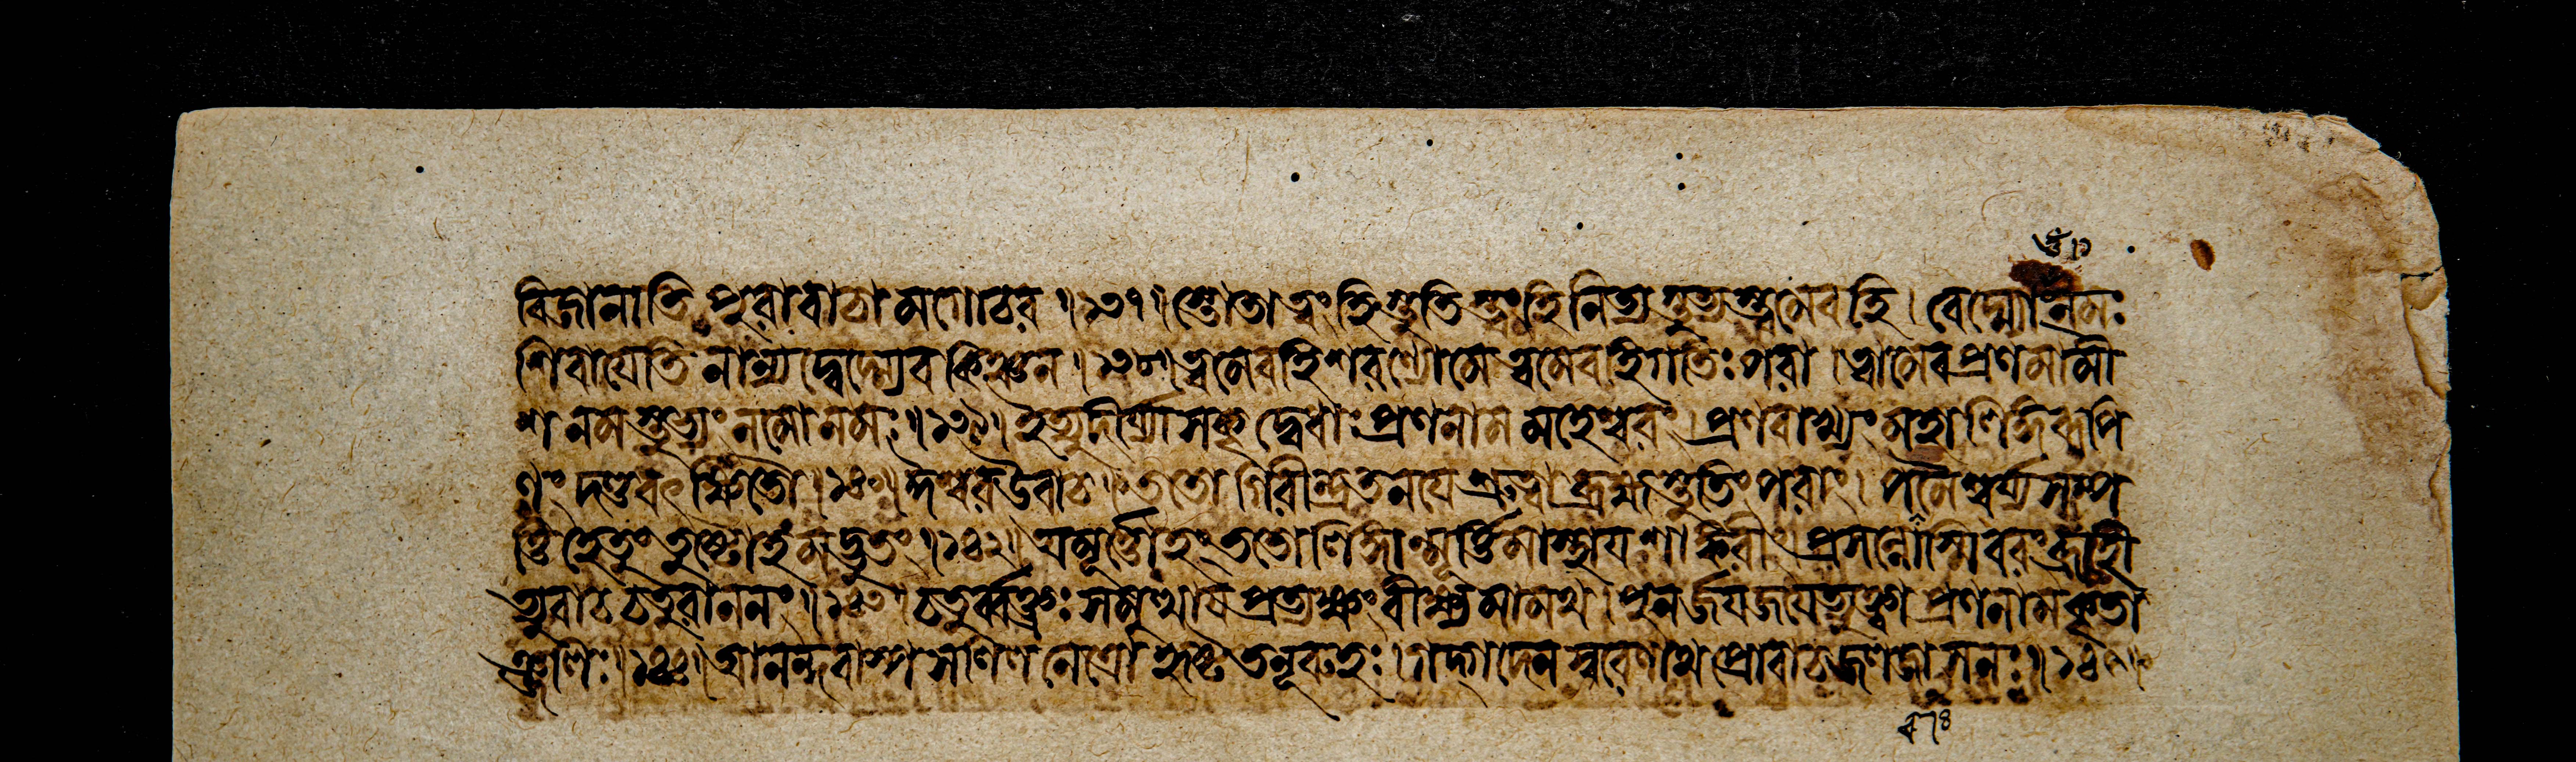 বিজানাতি পুরোবাচামগোচর ॥১৩৭॥ স্তোতাত্বংহিস্তুতিস্ত্বংহিনিত্যস্তুত্যস্ত্বমেবহি । বেদ্ম্যোন্নমঃ
শিবাযেতি নান্যদ্বেদ্ম্যেবকিঞ্চন ॥১৩৮॥ ত্বমেবহিশরণ্যোমে ত্বমেবহিগতিঃপরা । ত্বামেবপ্রণমামী
শ নমস্তুভ্যং নমোনমঃ ॥১৩৯॥ ইত্যুদীর্য্যাসকৃদ্বেধাঃ প্রণনাম মহেশ্বরং । প্রণবাখ্যং মহালিঙ্গরূপি
ণং দণ্ডবৎক্ষিতৌ ॥১৪০॥ ঈশ্বরউবাচ ॥ ততো গিরীন্দ্রতনযে শ্রুত্বাব্রহ্মস্তুতিংপরাং । পরমৈশ্বর্য্যসম্প
ত্তিহেতুং তুষ্টোহমদ্ভুতং ॥১৪২॥ অমূর্ত্তোহংততোলিঙ্গান্মূর্ত্তিমাস্থাযশাঙ্করীং । প্রসন্নোস্মিবরংব্রূহী
ত্যুবাচ চতুরাননং ॥১৪৩॥ চতুর্ব্বক্ত্রঃ সমুত্থায প্রত্যক্ষংবীক্ষ্যমামথ । পুনর্জযজযেত্যুক্ত্বা প্রণনামকৃতা
ঞ্জলিঃ ॥১৪৪॥ আনন্দবাস্পসলিলনেত্রো হৃষ্টতনূরুহঃ । গদ্গদেনস্বরেণাথ প্রোবাচজলজাসনঃ ॥১৪৫॥